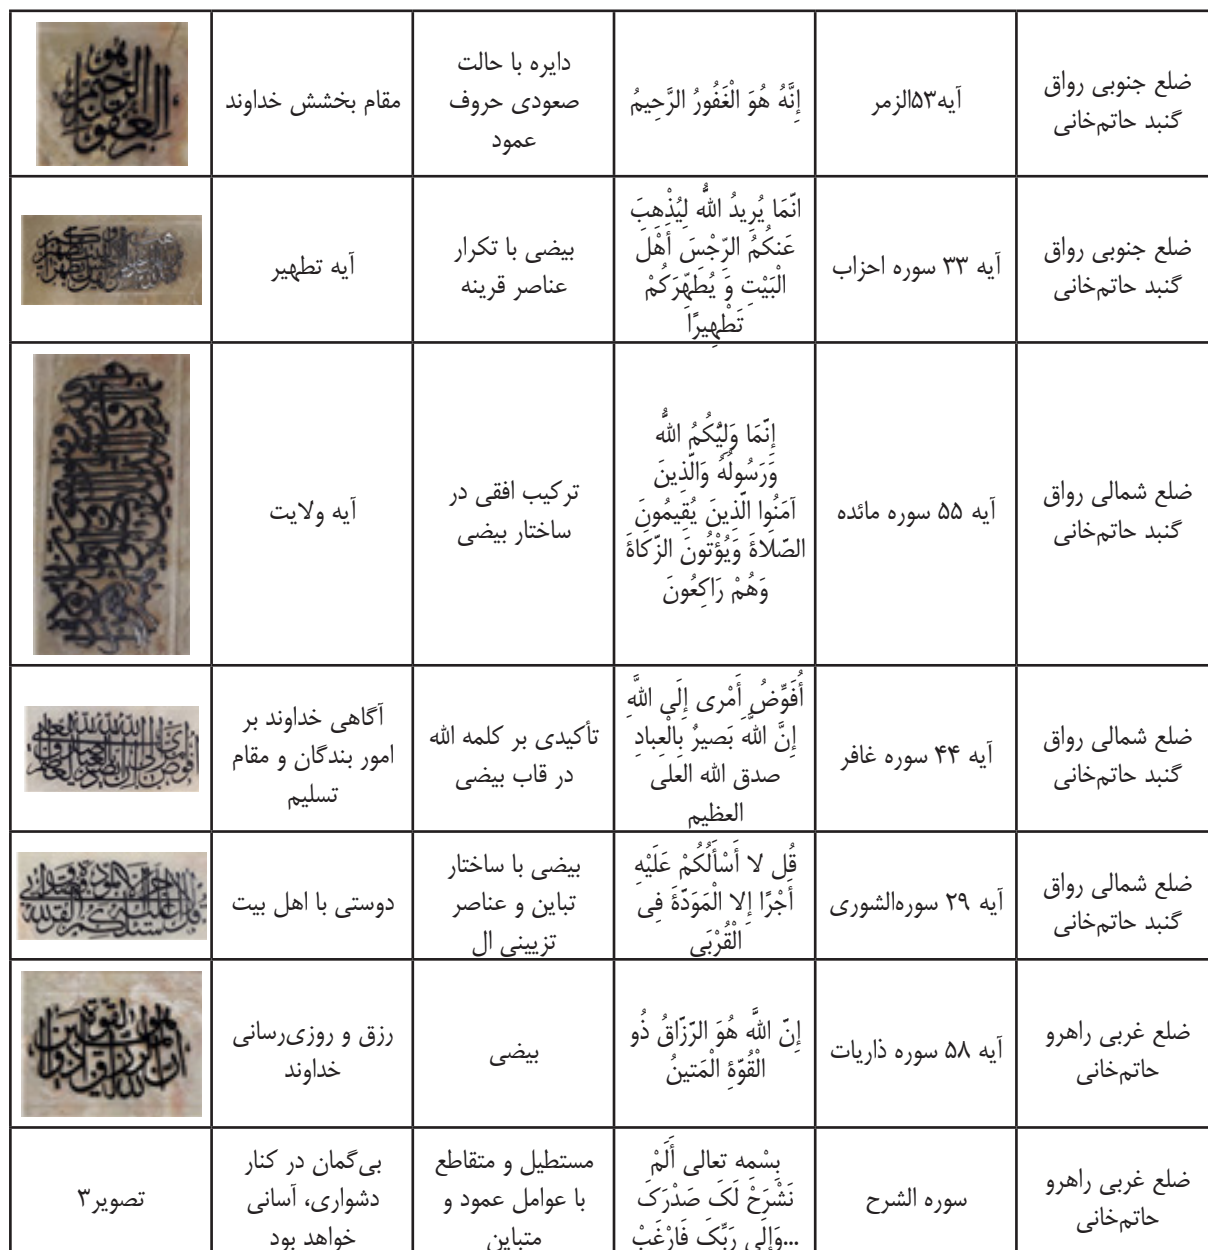 ضلع جنوبی رواق
گنبد حاتم‌خانی
آیه۵۳الزمر
إِنَّهُ هُوَ الْغَفُورُ الرَّحِیمُ
دایره با حالت
صعودی حروف
عمود
مقام بخشش خداوند
ضلع جنوبی رواق
گنبد حاتم‌خانی
آیه ۳۳ سوره احزاب
انّمَا یُرِیدُ اللَّه لِیُذْهِبَ
عَنکُمُ الرّجْسَ أَهْلَ
الْبَیْتِ وَ یُطَهّرَکُمْ
تَطْهِیرًا
بیضی با تکرار
عناصر قرینه
آیه تطهیر
ضلع شمالی رواق
گنبد حاتم‌خانی
آیه ۵۵ سوره مائده
إنّمَا وَلِیُّکُمُ اللَّه
وَرَسُولُهُ وَالّذِینَ
آمَنُوا الّذِینَ یُقِیمُونَ
الصّلَاةَ وَیُؤْتُونَ الزّکَاةَ
وَهُمْ رَاکِعُونَ
ترکیب افقی در
ساختار بیضی
آیه ولایت
ضلع شمالی رواق
گنبد حاتم‌خانی
آیه ۴۴ سوره غافر
أُفَوِّضُ أَمْری إِلَی اللَّهِ
إِنَّ اللَّهَ بَصیرٌ بِالْعبادِ
صدق الله العلی
العظیم
تأکیدی بر کلمه الله
در قاب بیضی
آگاهی خداوند بر
امور بندگان و مقام
تسلیم
ضلع شمالی رواق
گنبد حاتم‌خانی
آیه ۲۹ سوره‌الشوری
قُل لا أَسْأَلُکُمْ عَلَیْهِ
أَجْرًا إِلا الْمَوَدّةَ فِی
الْقُرْبَی
بیضی با ساختار
تباین و عناصر
تزیینی ال
دوستی با اهل بیت
ضلع غربی راهرو
حاتم‌خانی
آیه ۵۸ سوره ذاریات
إِنّ اللَّه هُوَ الرّزّاقُ ذُو
الْقُوّةِ الْمَتینُ
بیضی
رزق و روزی‌رسانی
خداوند
ضلع غربی راهرو
حاتم‌خانی
سوره الشرح
بِسْمِه تعالی أَلَمْ
نَشْرَحْ لَکَ صَدْرَکَ
...وَإِلَی رَبِّکَ فَارْغَبْ
مستطیل و متقاطع
با عوامل عمود و
متباین
بی‌گمان در کنار
دشواری، آسانی
خواهد بود
تصویر۳